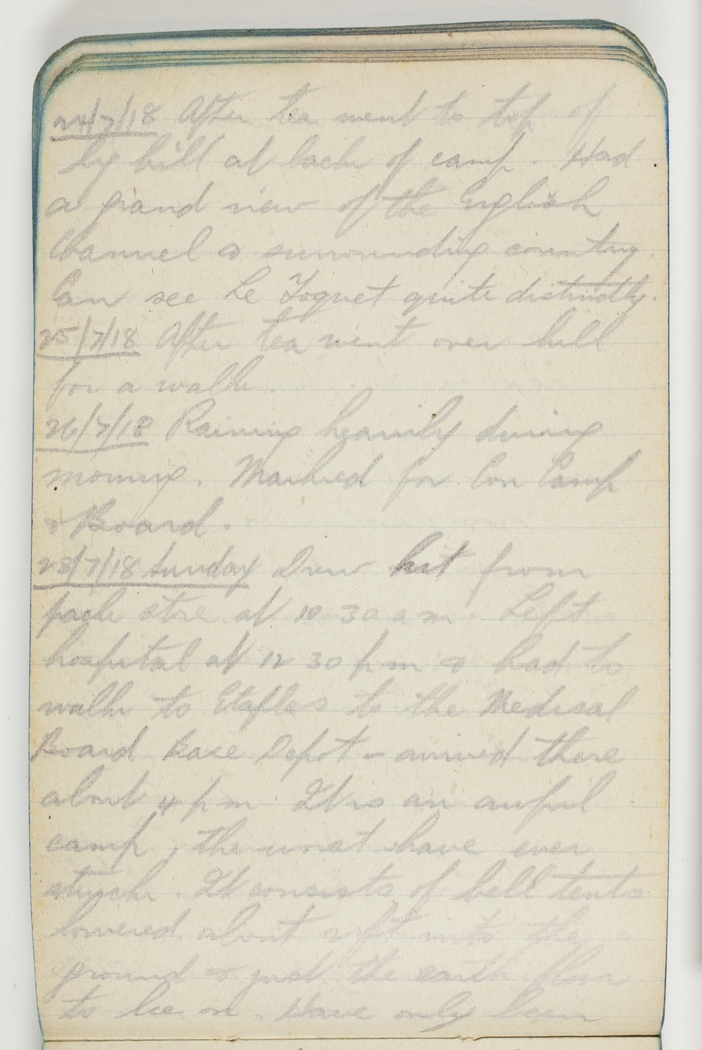 24/7/18 After tea went to top of
big hill at back of camp. Had
a grand view of the English
Channel & surrounding country.
Can see Le Toquet quite distinctly.
25/7/18 After tea went over hill
for a walk.
26/7/18 Raining heavily during
morning. Marked for Con Camp
& Board.
28/7/18 Sunday Drew kit from
pack store at 10 30 a m. Left
hospital at 12 30 p m & had to
walk to Etaples to the Medical
Board Base Depot - arrived there
about 4 p m. It is an awful
camp, the worst have ever
struck. It consists of bell tents
lowered about 2 ft into the
ground & just the earth floor
to lie on. Have only been